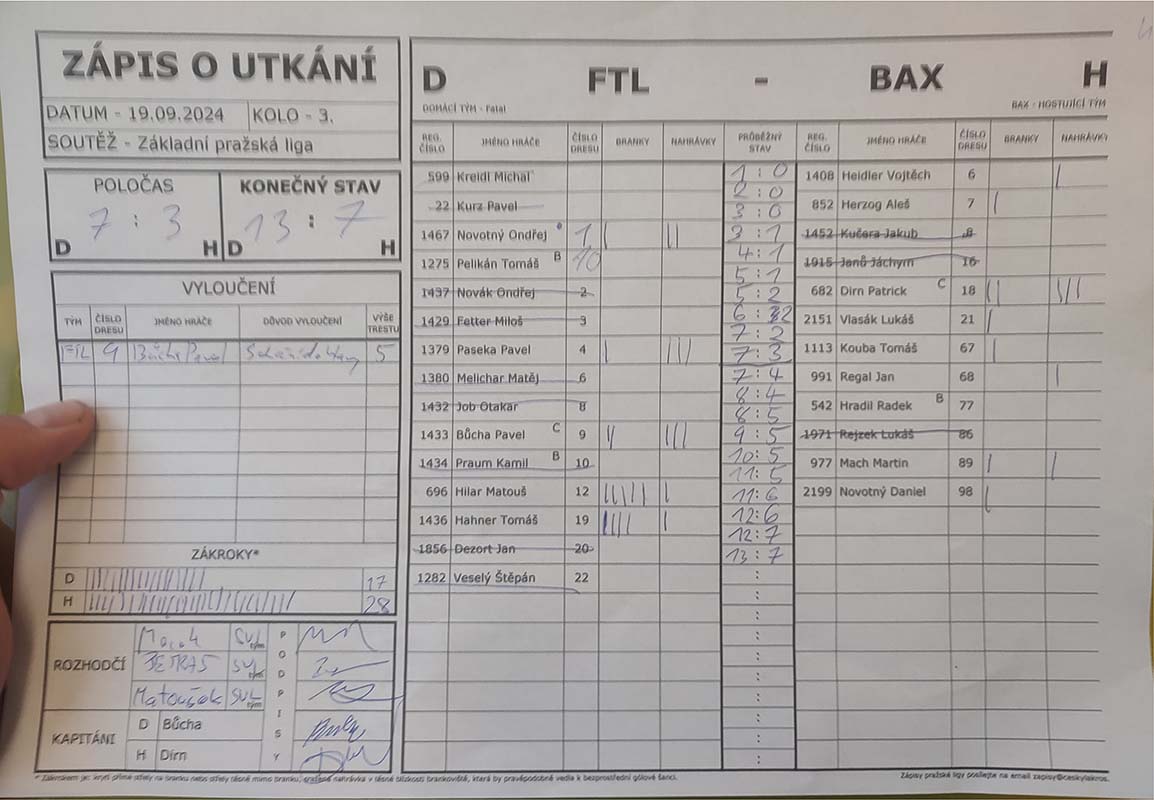 ZÁPIS O UTKÁNÍ
DATUM - 19.09.2024 KOLO - 3.
SOUTĚŽ - Základní pražská liga
POLOČAS KONEČNÝ STAV
7 : 3 13 : 7
D H D H
VYLOUČENÍ
TÝM ČÍSLO DRESU JMÉNO HRÁČE DŮVOD VYLOUČENÍ VÝŠE TRESTU
FTL 9 Bůcha Pavel 5
ZÁKROKY*
D 17
H 28
ROZHODČÍ
PETRAS
Matoušek
PODPISY
KAPITÁNI
D Bůcha
H Dirn
D FTL - BAX H
DOMÁCÍ TÝM - Fatal BAX - HOSTUJÍCÍ TÝM
REG. ČÍSLO JMÉNO HRÁČE ČÍSLO DRESU BRANKY NAHRÁVKY PRŮBĚŽNÝ STAV REG. ČÍSLO JMÉNO HRÁČE ČÍSLO DRESU BRANKY NAHRÁVKY
599 Kreidl Michal
22 Kurz Pavel
1467 Novotný Ondřej 1 | ||
1275 Pelikán Tomáš B 10
1437 Novák Ondřej 2
1429 Fetter Miloš 3
1379 Paseka Pavel 4 | |||
1380 Melichar Matěj 6
1432 Job Otakar 8
1433 Bůcha Pavel C 9 || |||
1434 Praum Kamil B 10
696 Hilar Matouš 12 |
1436 Hahner Tomáš 19 |||| |
1856 Dezort Jan 20
1282 Veselý Štěpán 22
1 : 0
2 : 0
3 : 0
3 : 1
4 : 1
5 : 1
5 : 2
6 : 2
7 : 2
7 : 3
7 : 4
8 : 4
8 : 5
9 : 5
10 : 5
11 : 5
11 : 6
12 : 6
12 : 7
13 : 7
1408 Heidler Vojtěch 6 |
852 Herzog Aleš 7 |
1452 Kučera Jakub 8
1915 Janů Jáchym 16
682 Dirn Patrick C 18 || |||
2151 Vlasák Lukáš 21 |
1113 Kouba Tomáš 67 |
991 Regal Jan 68 |
542 Hradil Radek B 77
1971 Rejzek Lukáš 86
977 Mach Martin 89 | |
2199 Novotný Daniel 98 |
* Zákrokem je: krytí přímé střely na branku nebo střely těsně mimo branku, sražená nahrávka v těsné blízkosti brankoviště, která by pravděpodobně vedla k bezprostřední gólové šanci.
Zápisy pražské ligy posílejte na email zapisy@ceskylakros.